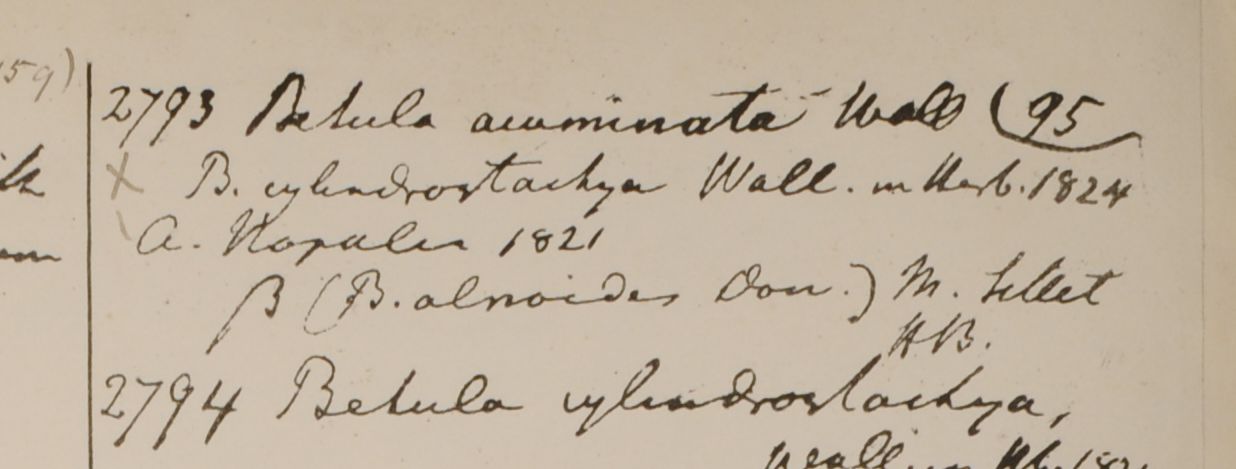 59)
2793 Betula acuminata Wall (95
B. cylindrostachya Wall. in Herb. 1824
a. Napalia 1821
β (B. alnoides Don.) M. Sillet
HB.
2794 Betula cylindrostachya,
Wall in Hb. 182